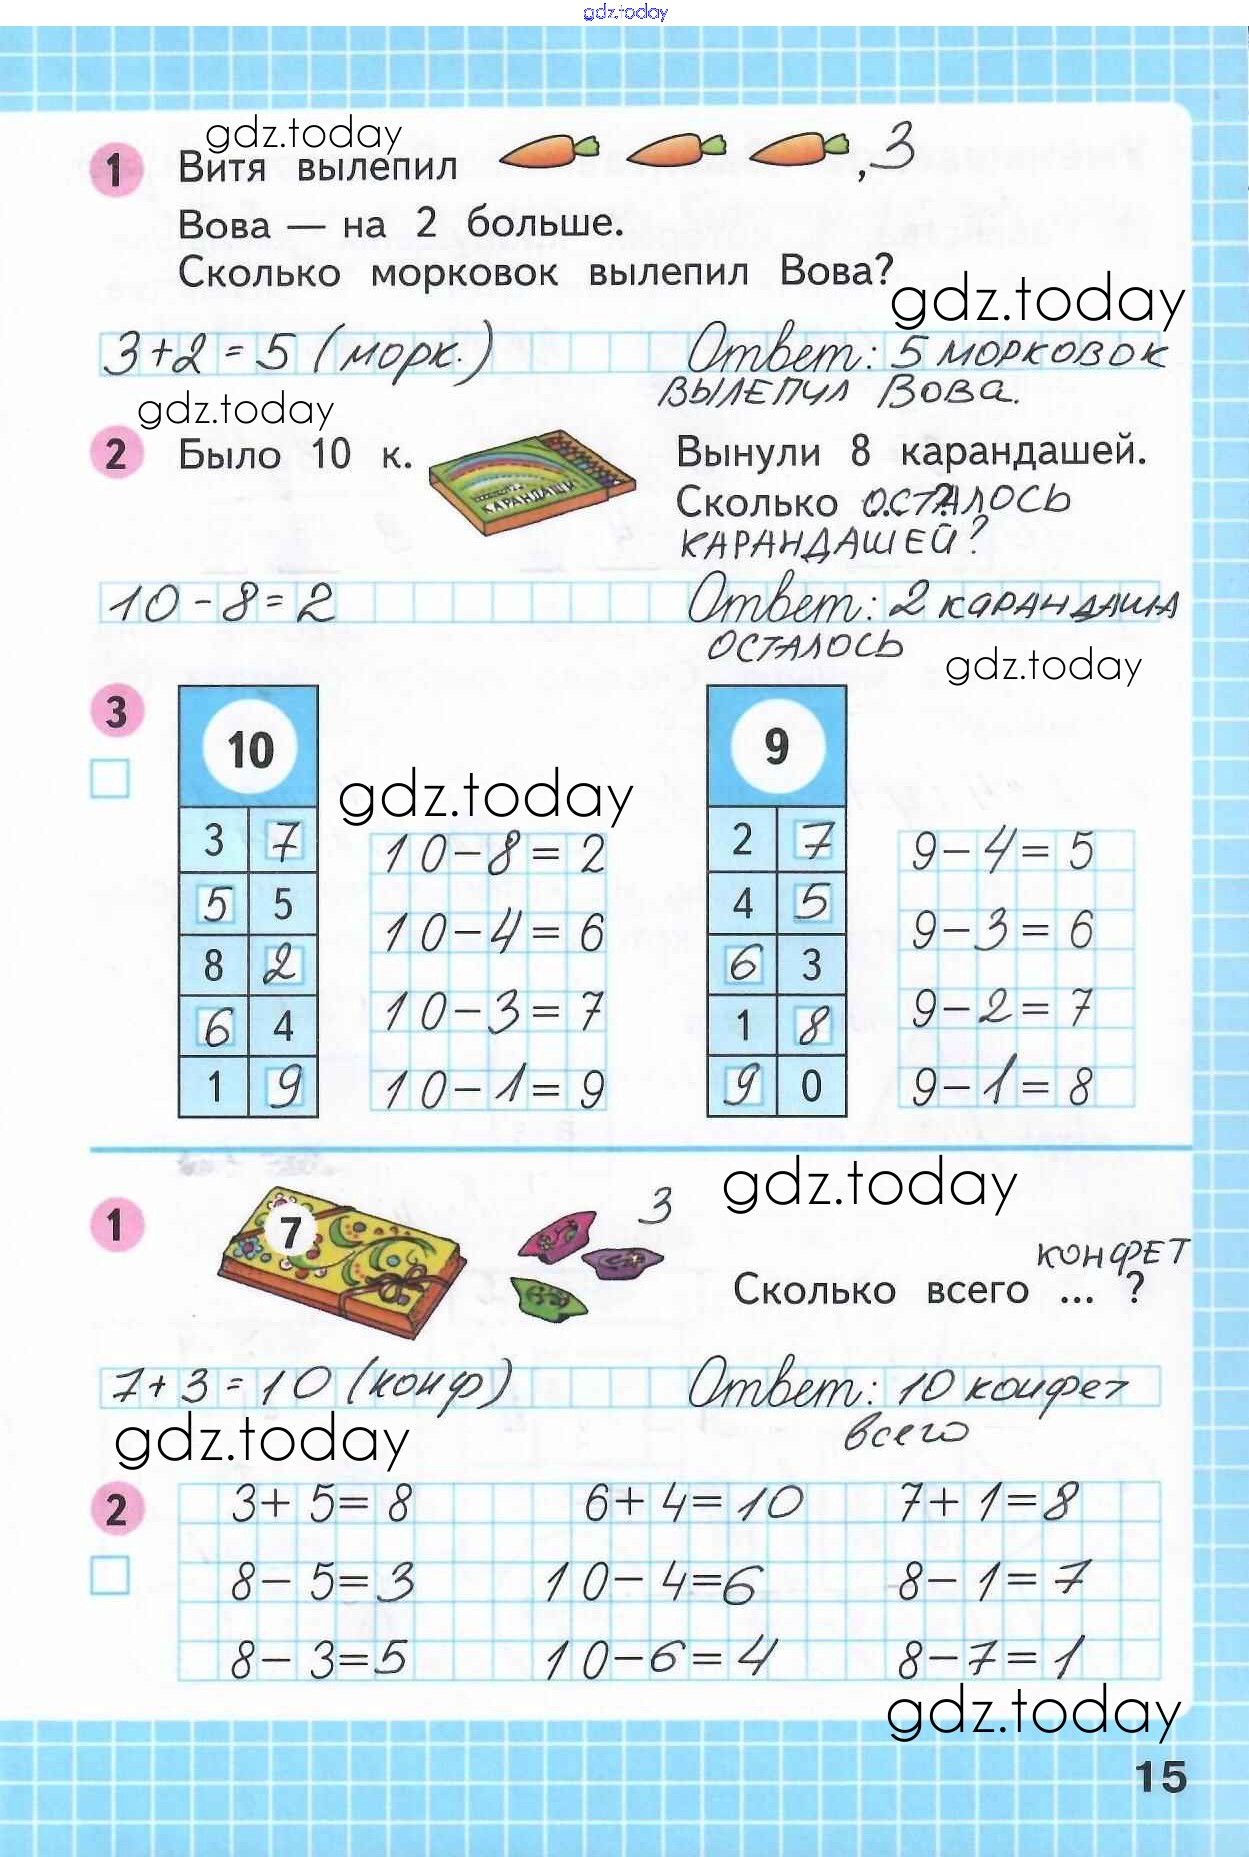 gdz.today
gdz.today
1 Витя вылепил , 3
Вова — на 2 больше.
Сколько морковок вылепил Вова?
gdz.today
3+2=5 (морк.) Ответ: 5 морковок
вылепил Вова.
gdz.today
2 Было 10 к. КАРАНДАШИ Вынули 8 карандашей.
Сколько осталось
карандашей?
10-8=2 Ответ: 2 карандаша
осталось
gdz.today
3
10
3 7
5 5
8 2
6 4
1 9
gdz.today
10-8=2
10-4=6
10-3=7
10-1=9
9
2 7
4 5
6 3
1 8
9 0
9-4=5
9-3=6
9-2=7
9-1=8
gdz.today
1 7 3
конфет
Сколько всего ... ?
7+3=10 (конф) Ответ: 10 конфет
всего
gdz.today
2 3+5=8 6+4=10 7+1=8
8-5=3 10-4=6 8-1=7
8-3=5 10-6=4 8-7=1
gdz.today
15